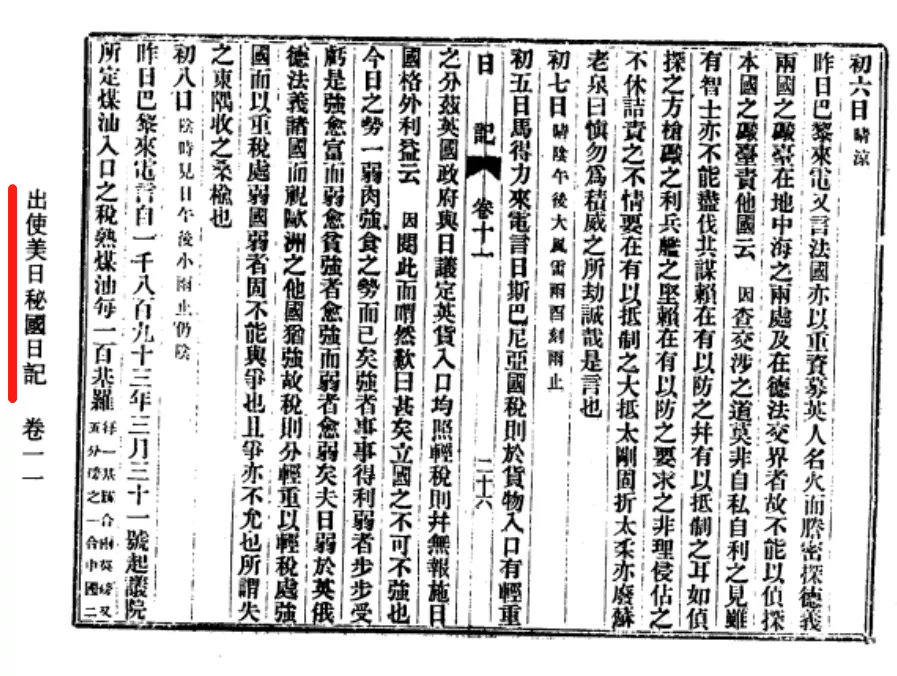 初六日晴涼
昨日巴黎來電又言法國亦以重資募英人名火而謄密探德義
兩國之礮臺在地中海之兩處及在德法交界者故不能以偵探
本國之礮臺責他國云因查交涉之道莫非自私自利之見雖
有智士亦不能盡伐其謀賴在有以防之幷有以抵制之耳如偵
探之方槍礮之利兵艦之堅賴在有以防之要求之非理侵佔之
不休詰責之不情要在有以抵制之大抵太剛固折太柔亦廢蘇
老泉曰愼勿爲積威之所劫誠哉是言也
初七日晴陰午後大風雷雨酉刻雨止
初五日馬得力來電言日斯巴尼亞國稅則於貨物入口有輕重
日記 卷十一 二十六
之分茲英國政府與日議定英貨入口均照輕稅則幷無報施日
國格外利益云因閱此而喟然歎曰甚矣立國之不可不強也
今日之勢一弱肉強食之勢而已矣強者事事得利弱者步步受
虧是強愈富而弱愈貧強者愈強而弱者愈弱矣夫日弱於英俄
德法義諸國而視歐洲之他國猶強故稅則分輕重以輕稅處強
國而以重稅處弱國弱者固不能與爭也且爭亦不允也所謂失
之東隅收之桑楡也
初八日陰時見日午後小雨止仍陰
昨日巴黎來電言自一千八百九十三年三月三十一號起議院
所定煤油入口之稅熟煤油每一百基羅每一基羅合兩英磅又
五分磅之一合中國二
出使美日秘國日記 卷一一